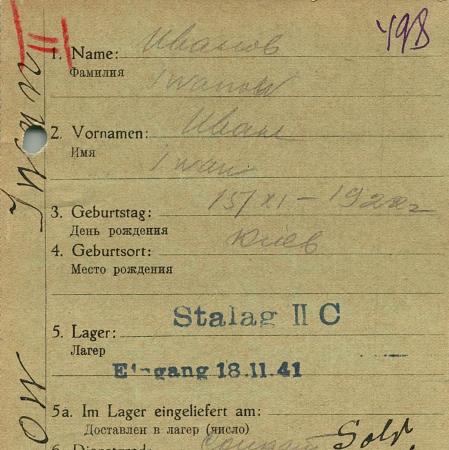 498
II
1. Name: Иванов
Фамилия Iwanow
2. Vornamen: Иван
Имя Iwan
3. Geburtstag: 15/XI - 1922г
День рождения
4. Geburtsort: Киев
Место рождения
Stalag II C
5. Lager:
Лагер
Eingang 18.11.41
5a. Im Lager eingeliefert am:
Доставлен в лагер (число)
6. Dienstgrad: Sold
Iwan
ow